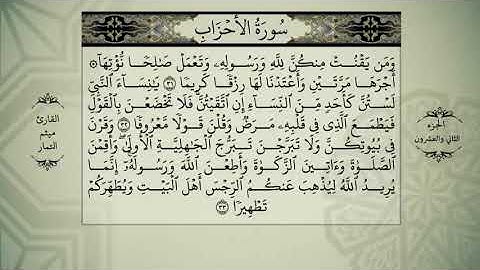 سُورَةُ الأَحْزَابِ
وَمَن يَقْنُتْ مِنكُنَّ لِلَّهِ وَرَسُولِهِۦ وَتَعْمَلْ صَٰلِحًا نُّؤْتِهَآ
أَجْرَهَا مَرَّتَيْنِ وَأَعْتَدْنَا لَهَا رِزْقًا كَرِيمًا ٣١ يَٰنِسَآءَ ٱلنَّبِيِّ
لَسْتُنَّ كَأَحَدٍ مِّنَ ٱلنِّسَآءِ إِنِ ٱتَّقَيْتُنَّ فَلَا تَخْضَعْنَ بِٱلْقَوْلِ
فَيَطْمَعَ ٱلَّذِى فِى قَلْبِهِۦ مَرَضٌ وَقُلْنَ قَوْلًا مَّعْرُوفًا ٣٢ وَقَرْنَ
فِى بُيُوتِكُنَّ وَلَا تَبَرَّجْنَ تَبَرُّجَ ٱلْجَٰهِلِيَّةِ ٱلْأُولَىٰ وَأَقِمْنَ
ٱلصَّلَوٰةَ وَءَاتِينَ ٱلزَّكَوٰةَ وَأَطِعْنَ ٱللَّهَ وَرَسُولَهُۥٓ إِنَّمَا
يُرِيدُ ٱللَّهُ لِيُذْهِبَ عَنكُمُ ٱلرِّجْسَ أَهْلَ ٱلْبَيْتِ وَيُطَهِّرَكُمْ
تَطْهِيرًا ٣٣
الجزء
الثاني والعشرون
القارئ
ميثم
التمار